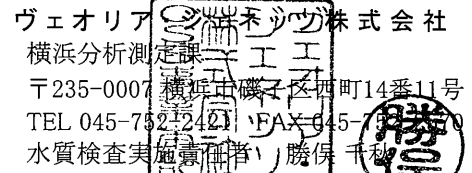 ヴェオリア・ジェネッツ株式会社
横浜分析測定課
〒235-0007 横浜市磯子区西町14番11号
TEL 045-752-2421 FAX 045-
水質検査実施責任者 勝俣 千秋